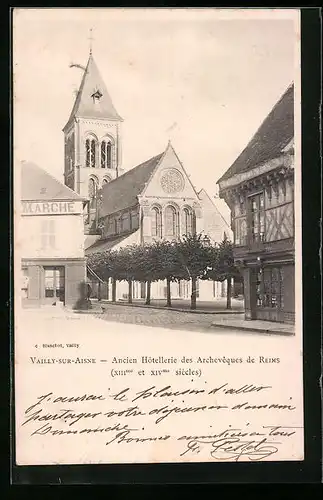 MARCHÉ
C. Blanchot, Vailly
VAILLY-SUR-AISNE — Ancien Hôtellerie des Archevêques de REIMS
(XIIIme et XIVme siècles)
J'aurai le plaisir d'aller
partager votre déjeuner demain
Dimanche. Bonnes amitiés à tous